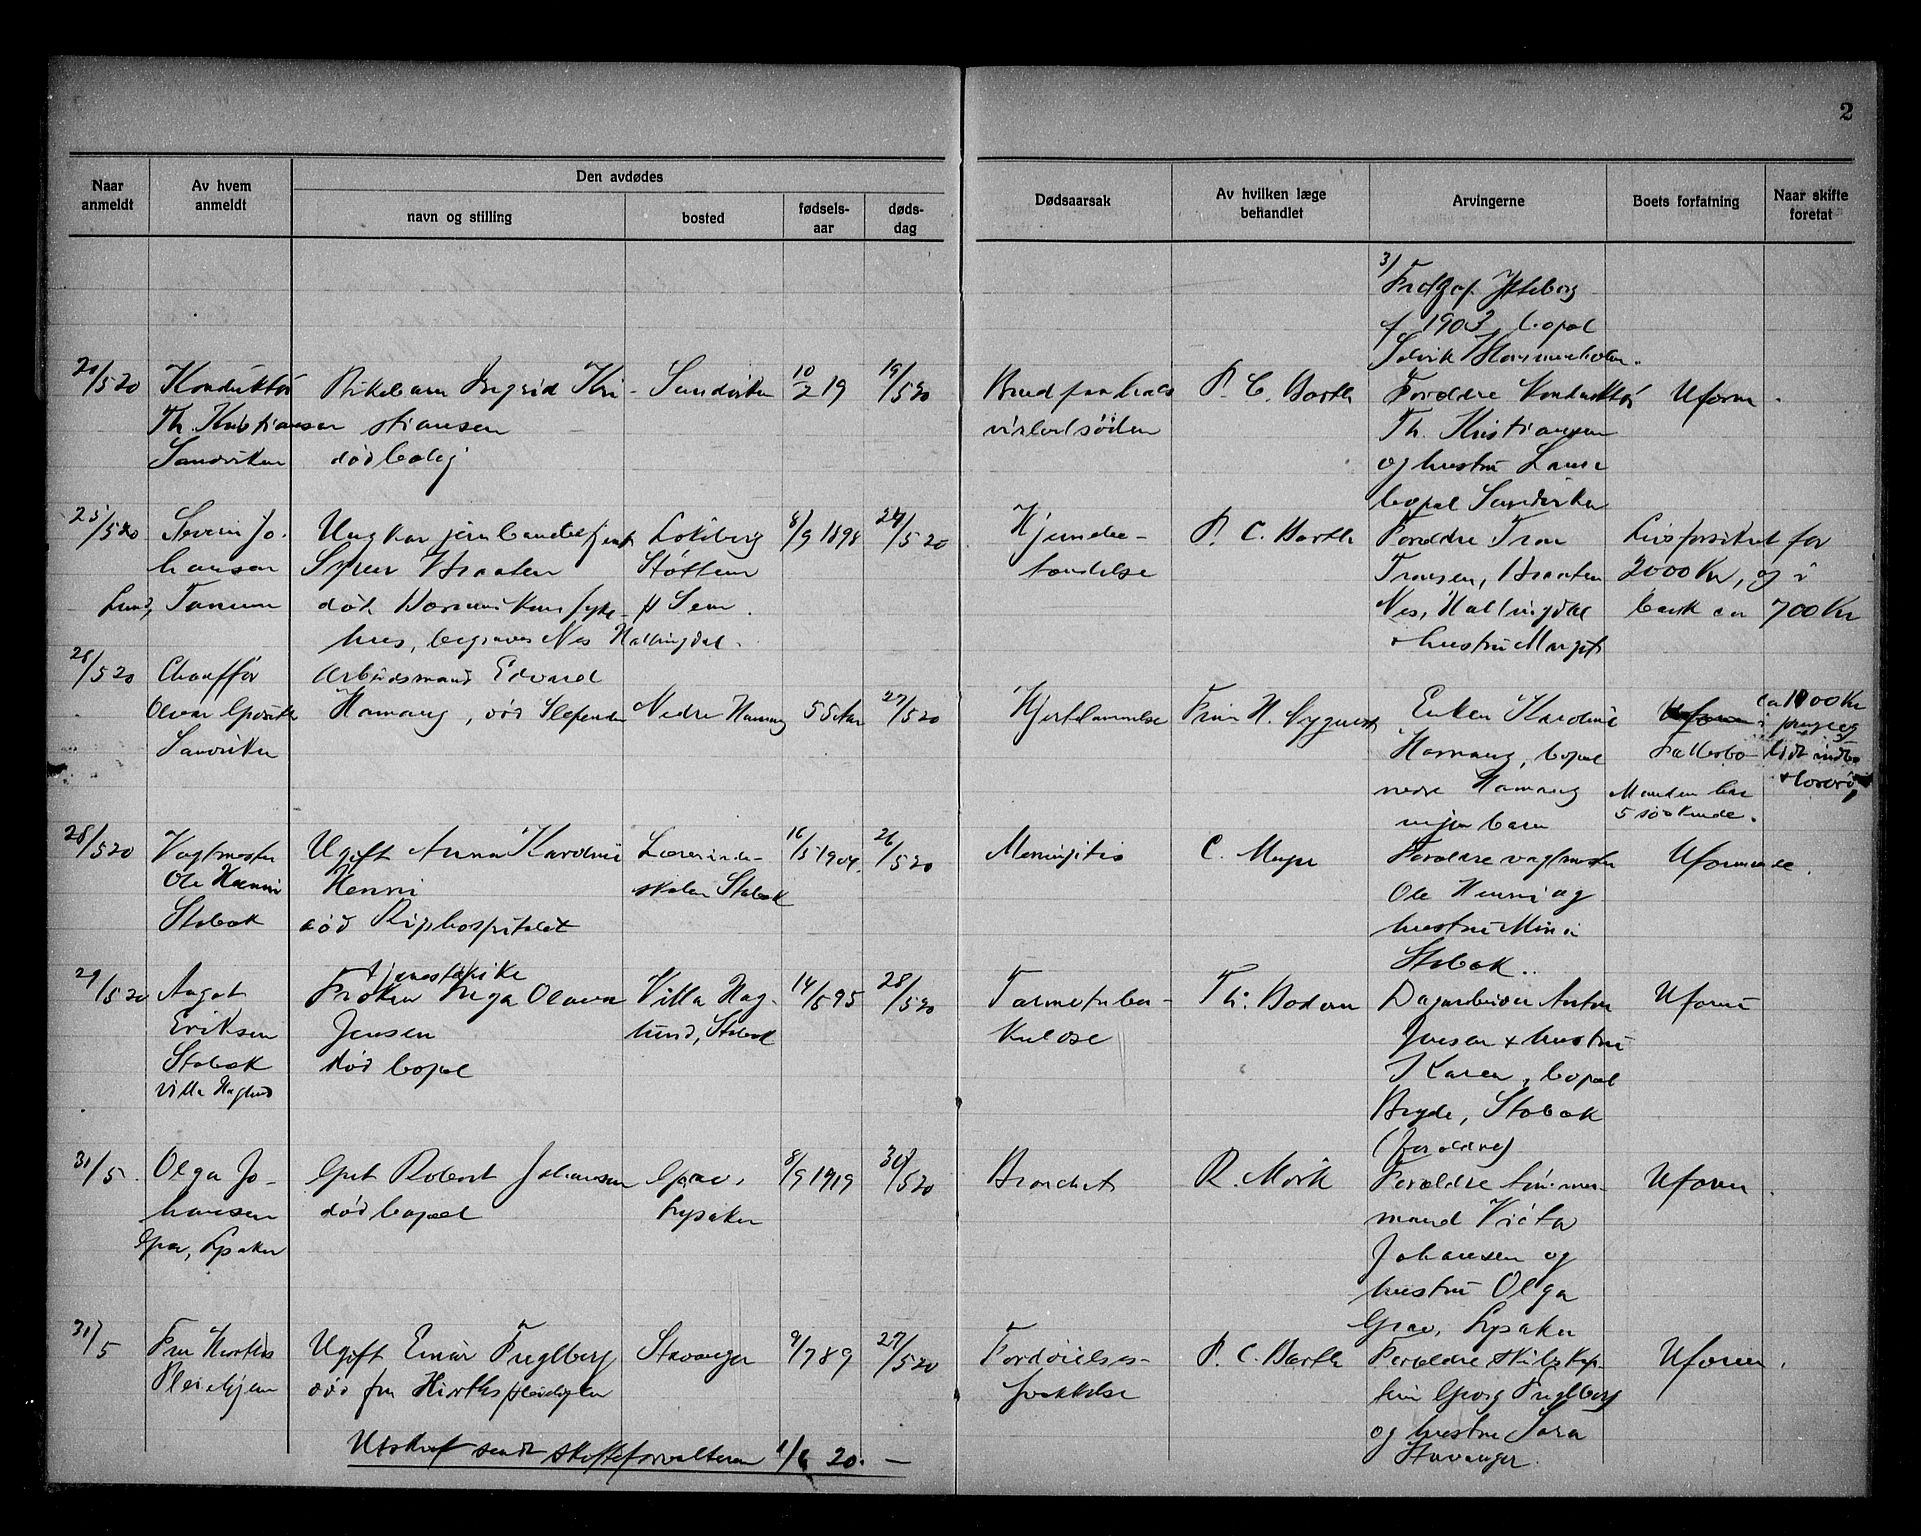 2
Naar anmeldt
Av hvem anmeldt
Den avdødes
navn og stilling
bosted
fødselsaar
dødsdag
Dødsaarsak
Av hvilken læge behandlet
Arvingerne
Boets forfatning
Naar skifte foretat
3/
f 1903, bopæl
Konduktør
Th. Kristiansen
Sandviken
Pikebarn Ingrid Kri-
stiansen
død bolig
Sandviken
10/2 19
19/5 20
P. C. Barth
Forældre Konduktør
Th. Kristiansen
og hustru
bopæl Sandviken
Uform.
25/5 20
Severin Jo-
hansen
Lund, Tanum
Ungkar jernbanebetjent
Braaten
død Bærum Kom. syke-
hus, begraves Nes Hallingdal.
Løkeberg
8/9 1898
24/5 20
Hjernebe-
tændelse
P. C. Barth
Forældre
Braaten
Nes, Hallingdal
+ hustru Margit
Livsforsikret for
2000 Kr, og i
bank ca 700 Kr
28/5 20
Chauffør
Sandviken
Arbeidsmand Edvard
Hamang, død Slependen
Nedre Hamang
55 Aar
27/5 20
Hjertelammelse
Enken Karoline
Hamang, bopæl
nedre Hamang
ingen barn
ca 1000 Kr
penge og
Fællesbo
lidt indbo
Manden har
5 søskende.
28/5 20
Vagtmester
Ole Henni
Stabæk
Ugift Anna Karoline
Henni
død Rikshospitalet
Lærerinde-
skolen Stabæk
16/5 1904.
26/5 20
Meningitis
C. Meyer
Forældre vagtmester
Ole Henni og
hustru
Stabæk.
Uformuende.
29/5 20
Aagot
Eriksen
Stabæk
villa Haglund
tjenestepike
Frøken Inga Olava
Jensen
død bopæl
Villa Hag-
lund, Stabæk
14/5 95
28/5 20
Tarmetuber-
kulose
Th. Bodom
Dagarbeider Anton
Jensen + hustru
Karen, bopæl
Bryde, Stabæk
(forældre)
Uform
31/5.
Olga Jo-
hansen
Grav, Lysaker
Gut Robert Johansen
død bopæl
Grav,
Lysaker
8/9 1919
30/5 20
Bronchit
R. Mørk
Forældre tømmer-
mand Victor
Johansen og
hustru Olga
Grav, Lysaker
Uform.
31/5
Fru Hirths
Pleiehjem
Ugift Einar Fuglberg
død fru Hirths pleiehjem
Stavanger
9/7 89
27/5 20
Fordøielses-
P. C. Barth
Forældre
Georg Fuglberg
og hustru Sara
Stavanger.
Uform.
Utskrift sendt skifteforvalteren 1/6 20. —